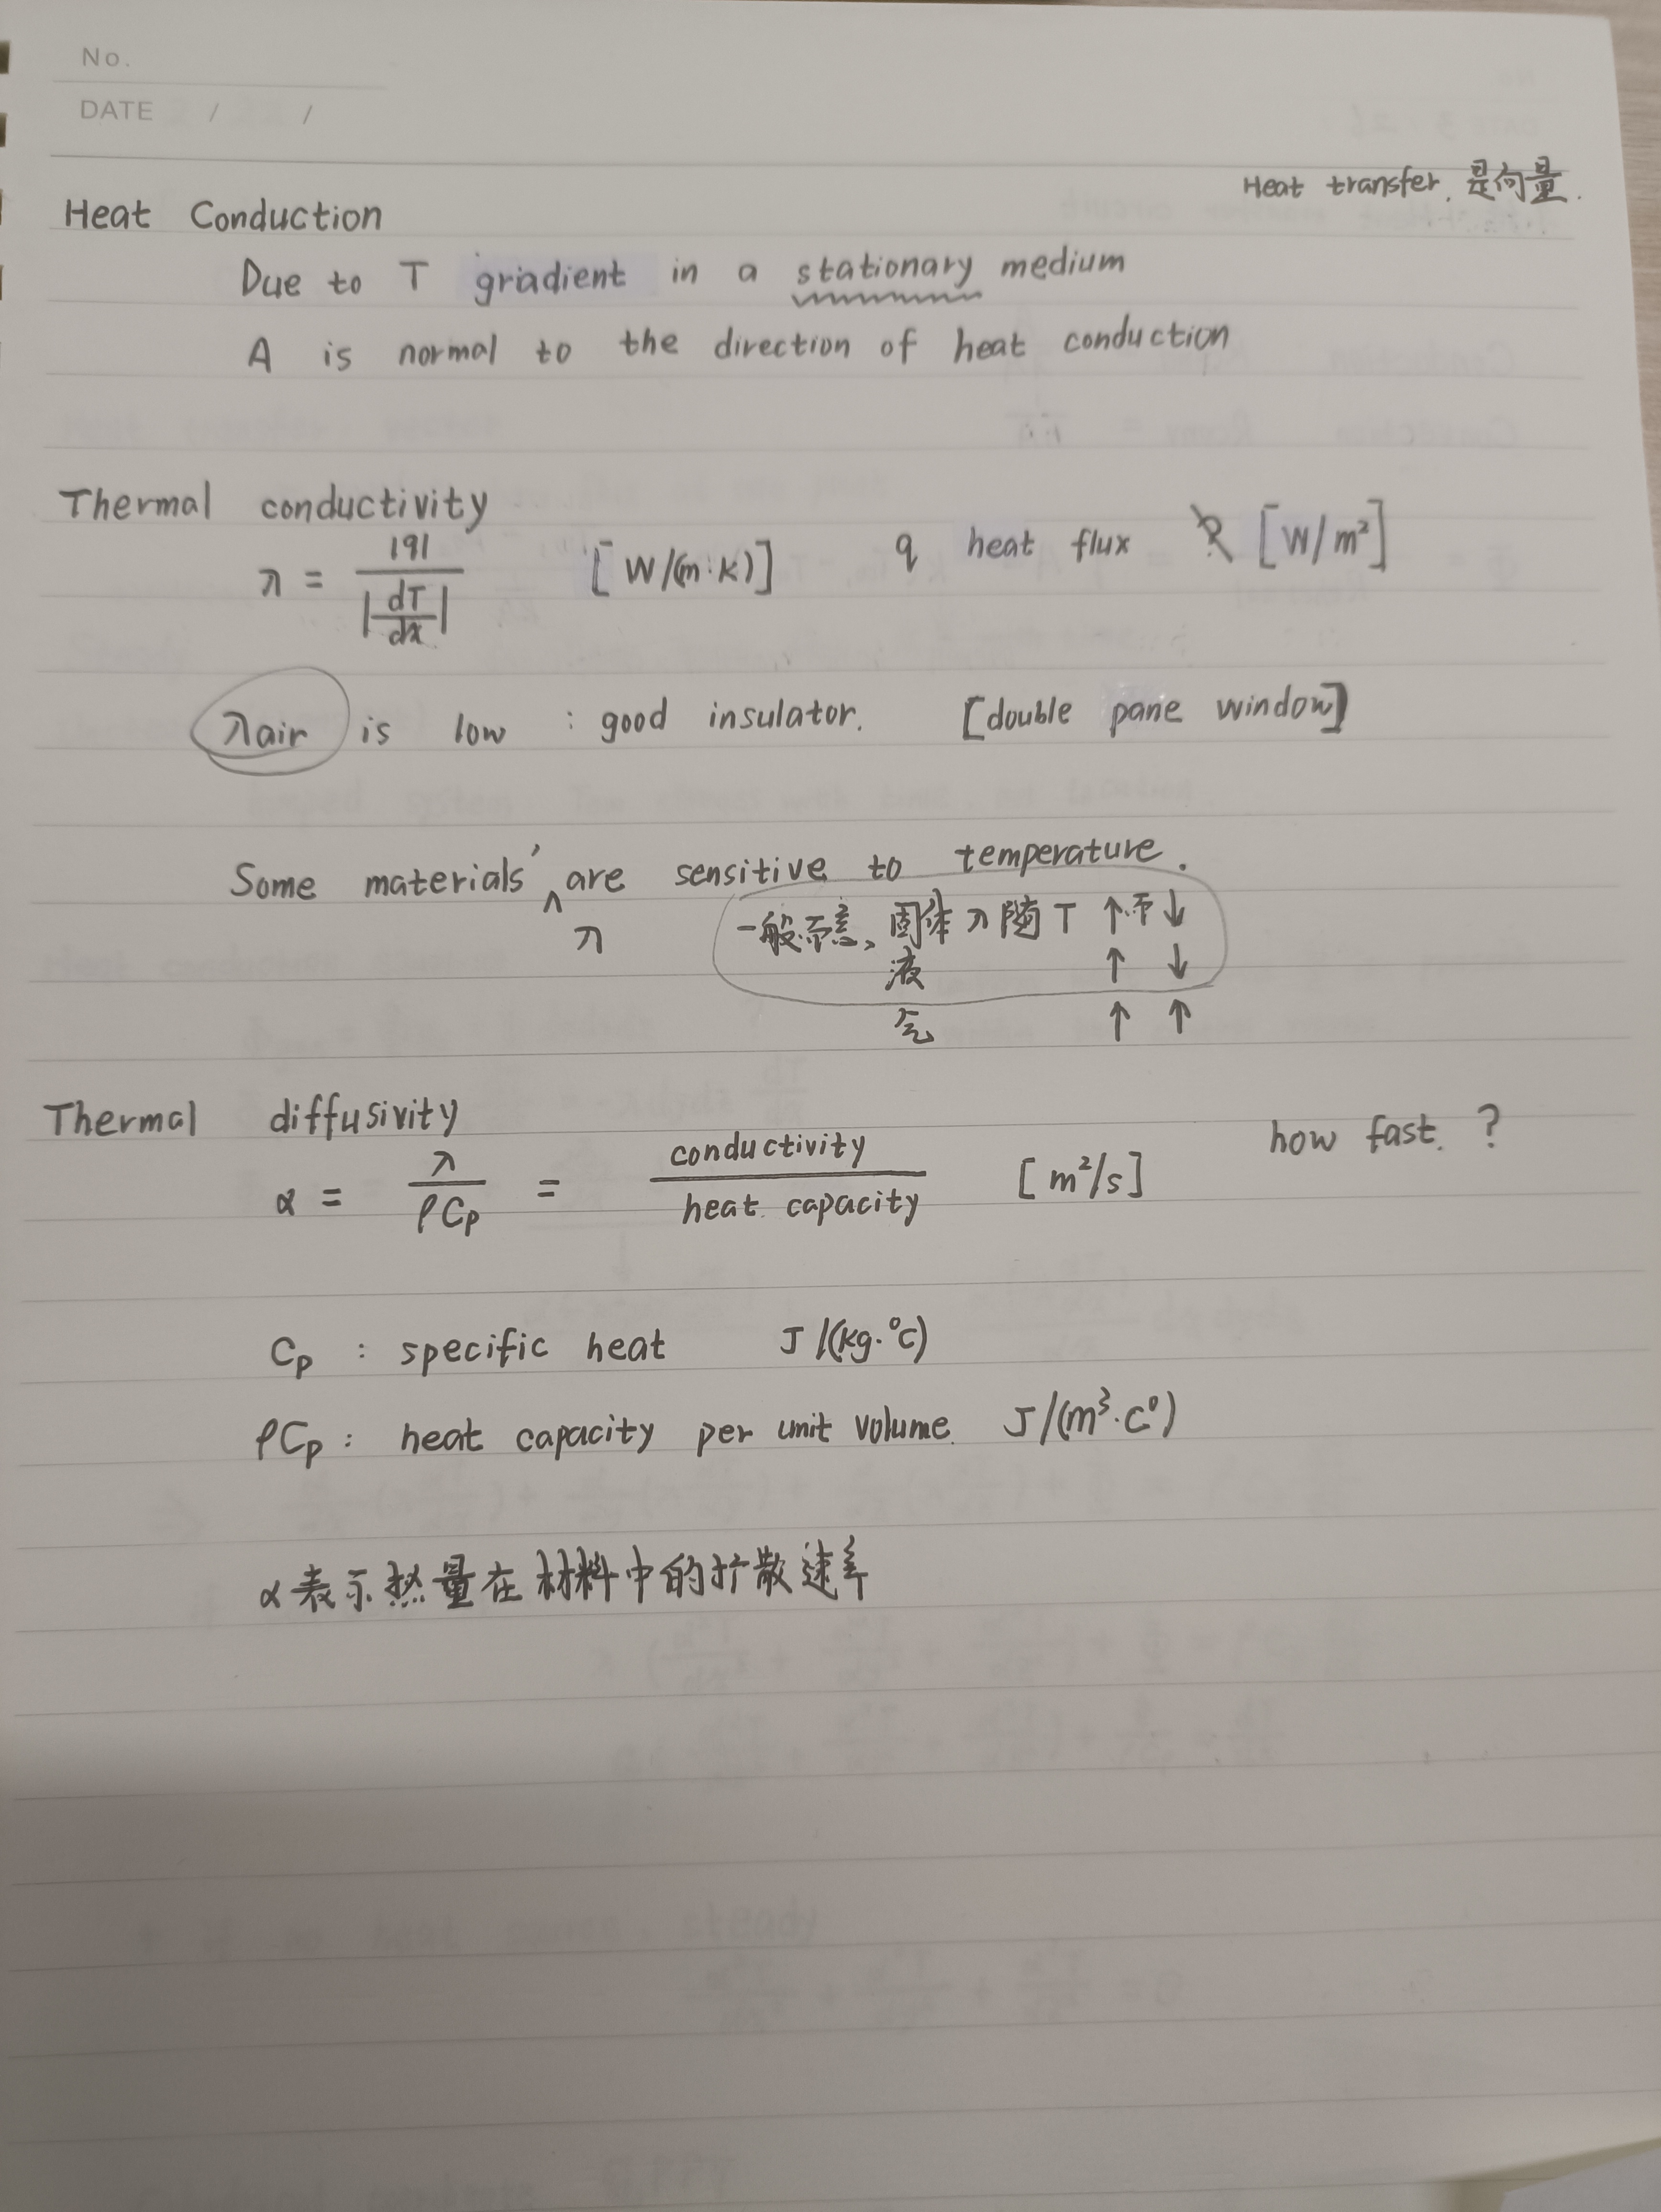 No.
DATE / /
Heat transfer. 是向量.
Heat Conduction
Due to T gradient in a stationary medium
A is normal to the direction of heat conduction
Thermal conductivity
λ = |q| / |dT/dx| [W/(m·K)] q heat flux [W/m²]
λair is low : good insulator. [double pane window]
Some materials' λ are sensitive to temperature.
一般 固体 λ 随 T ↑ ↓
液 ↑ ↓
气 ↑ ↑
Thermal diffusivity how fast. ?
α = λ / ρCp = conductivity / heat capacity [m²/s]
Cp : specific heat J/(kg·°C)
ρCp : heat capacity per unit volume. J/(m³·C°)
α表示热量在材料中的扩散速率